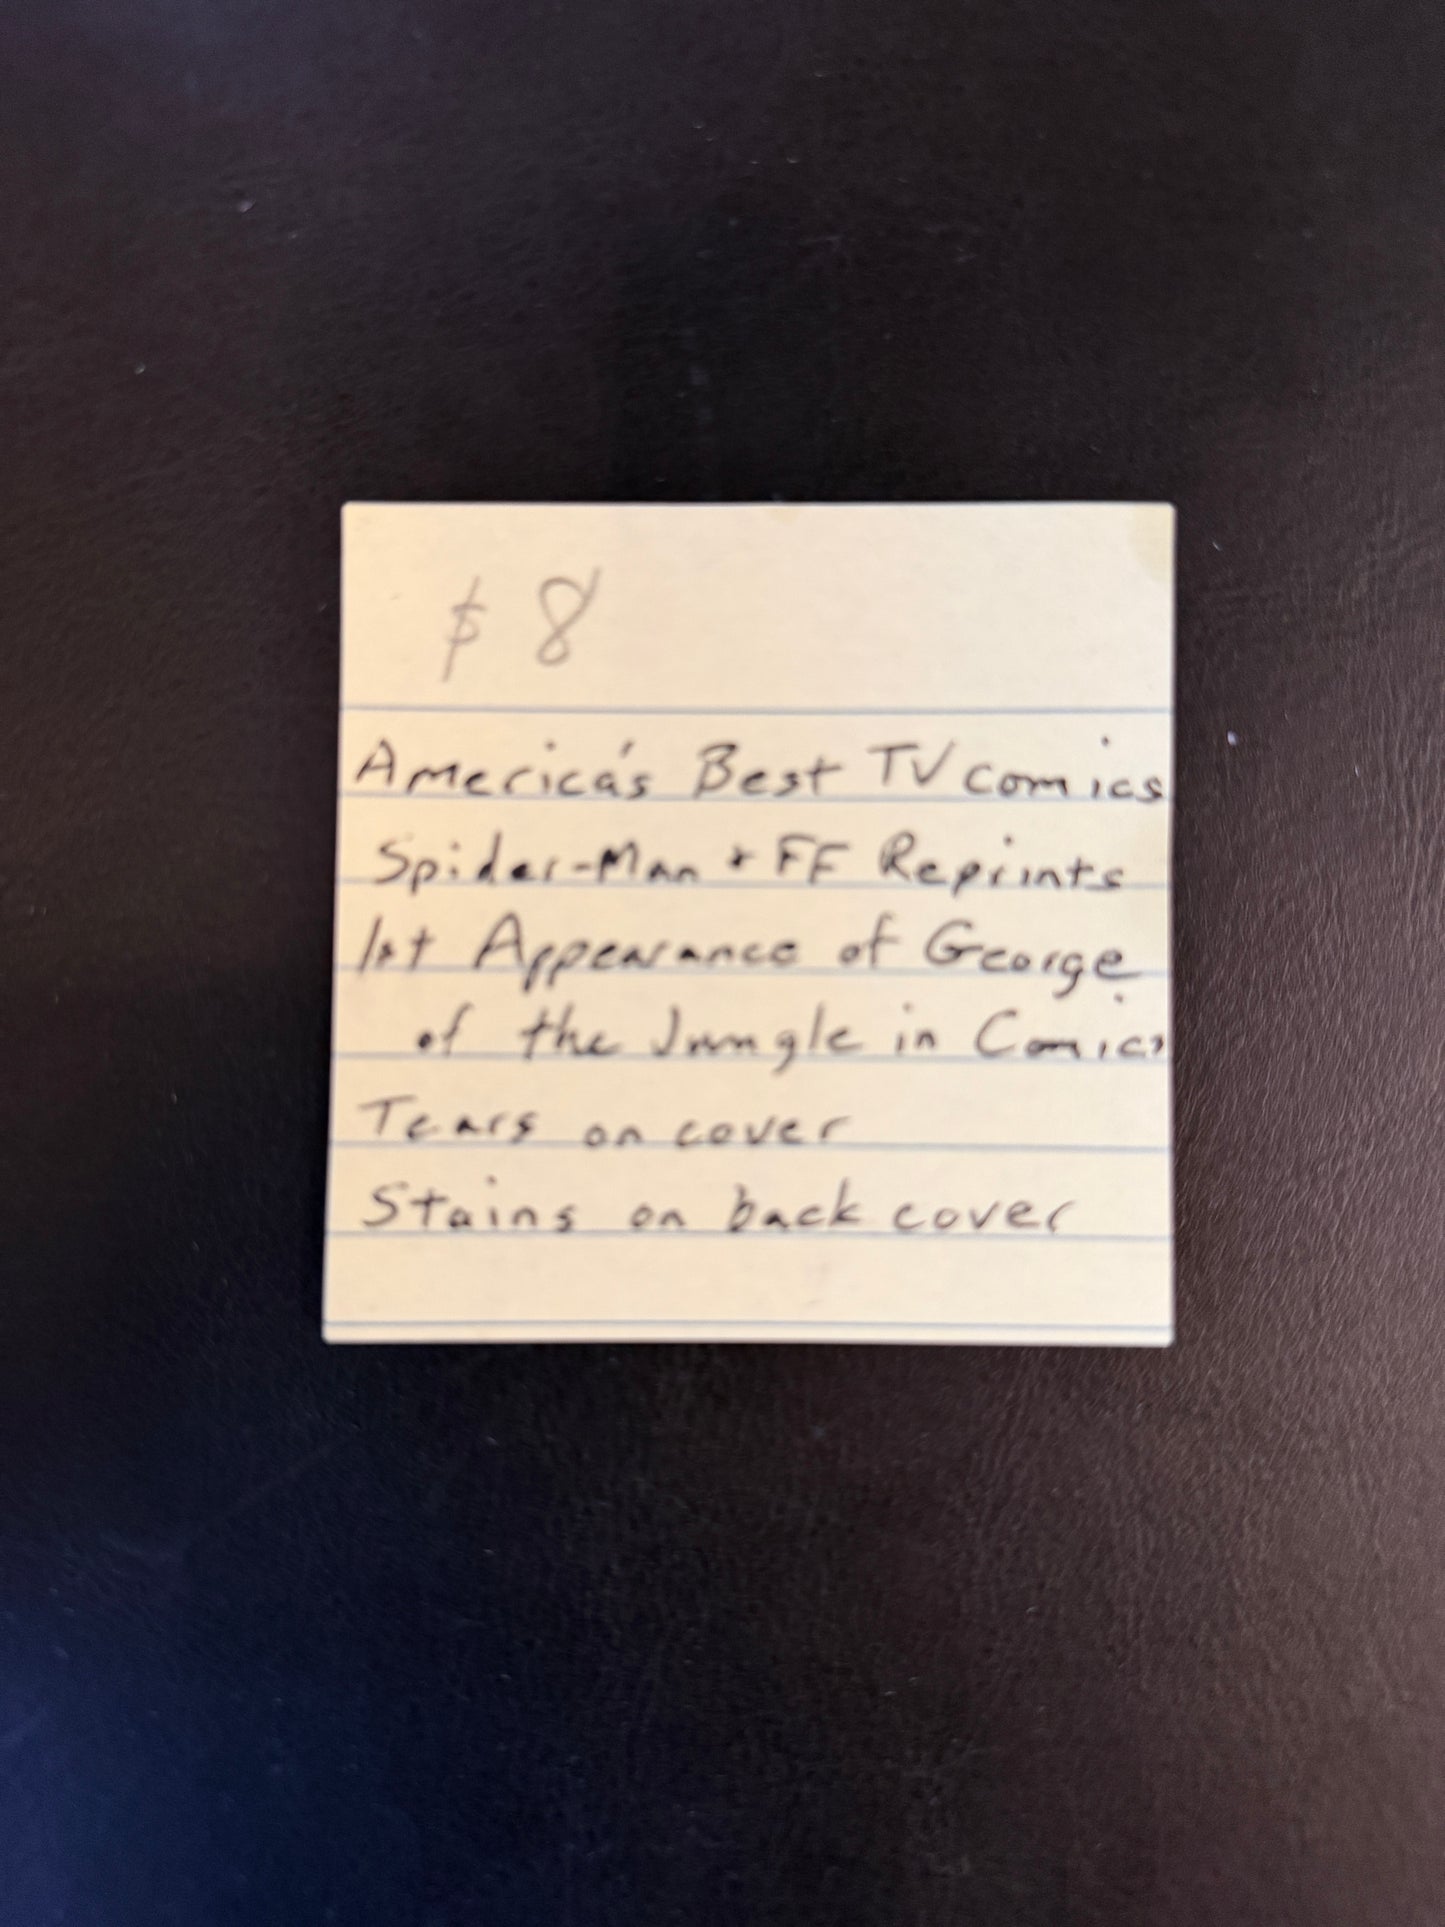 $ 8
America's Best TV Comics
Spider-Man + FF Reprints
1st Appearance of George
of the Jungle in Comics
Tears on cover
Stains on back cover